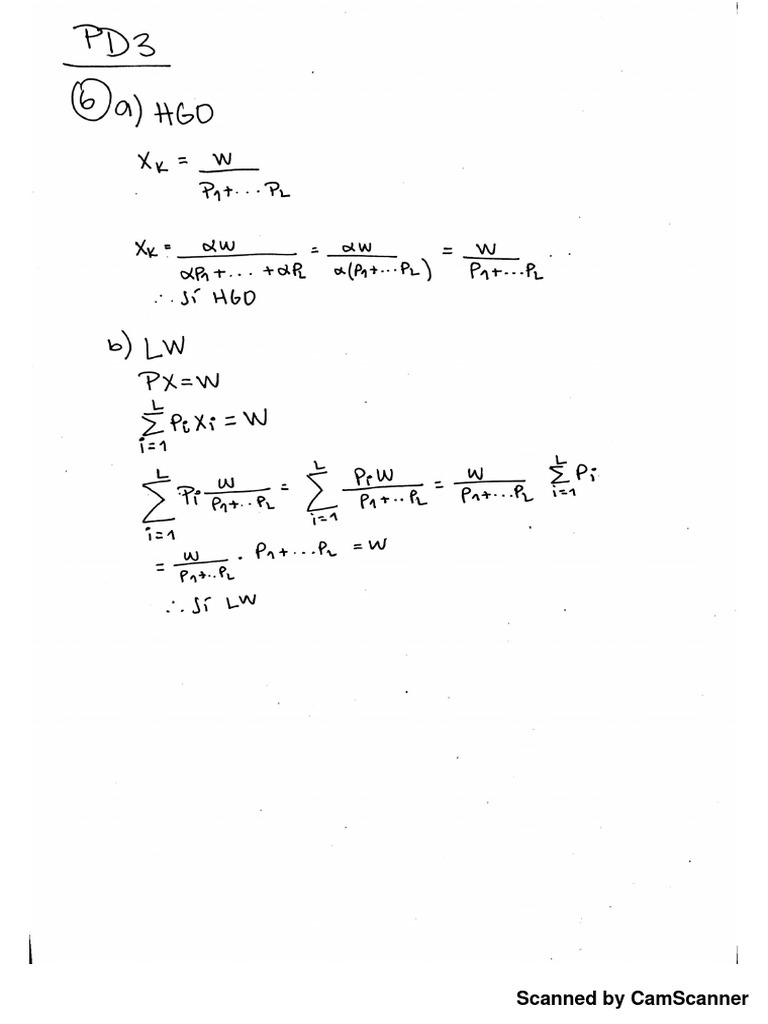 PD3
6 a) HGO
X_K = W / (P1+...PL)
X_K = αW / (αP1+...+αPL) = αW / (α(P1+...PL)) = W / (P1+...PL) ..
∴ Sí HGO
b) LW
PX=W
∑_{i=1}^{L} Pi Xi = W
∑_{i=1}^{L} Pi W / (P1+..PL) = ∑_{i=1}^{L} PiW / (P1+..PL) = W / (P1+..PL) ∑_{i=1}^{L} Pi
= W / (P1+..PL) . P1+...PL = W
∴ Sí LW
Scanned by CamScanner